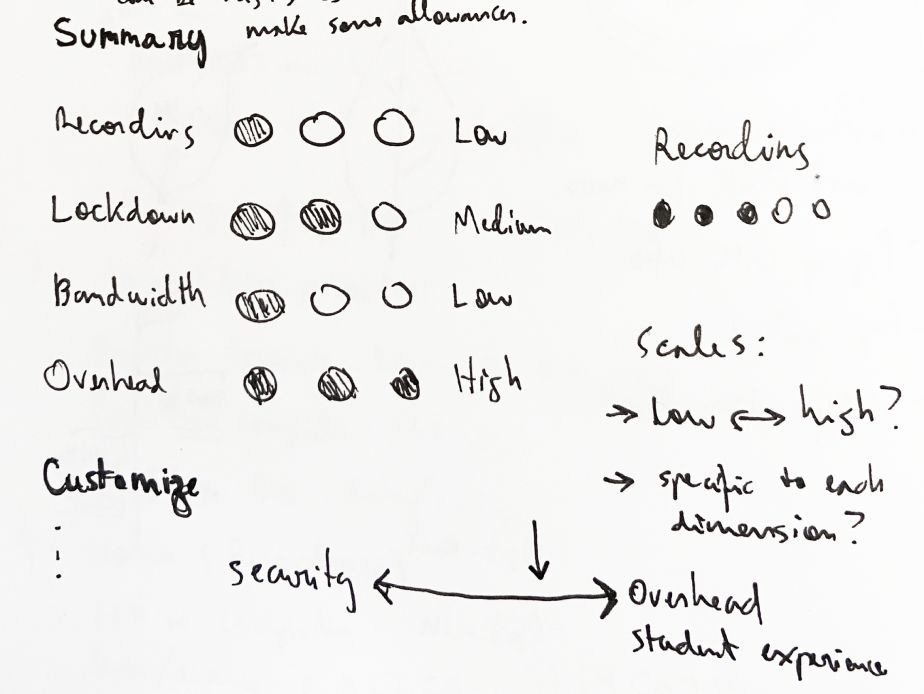 make some allowances.
Summary
Recording
Low
Lockdown
Medium
Bandwidth
Low
Overhead
High
Customize
Recording
Scales:
→ Low ↔ high?
→ specific to each
dimension?
security
Overhead
student experience